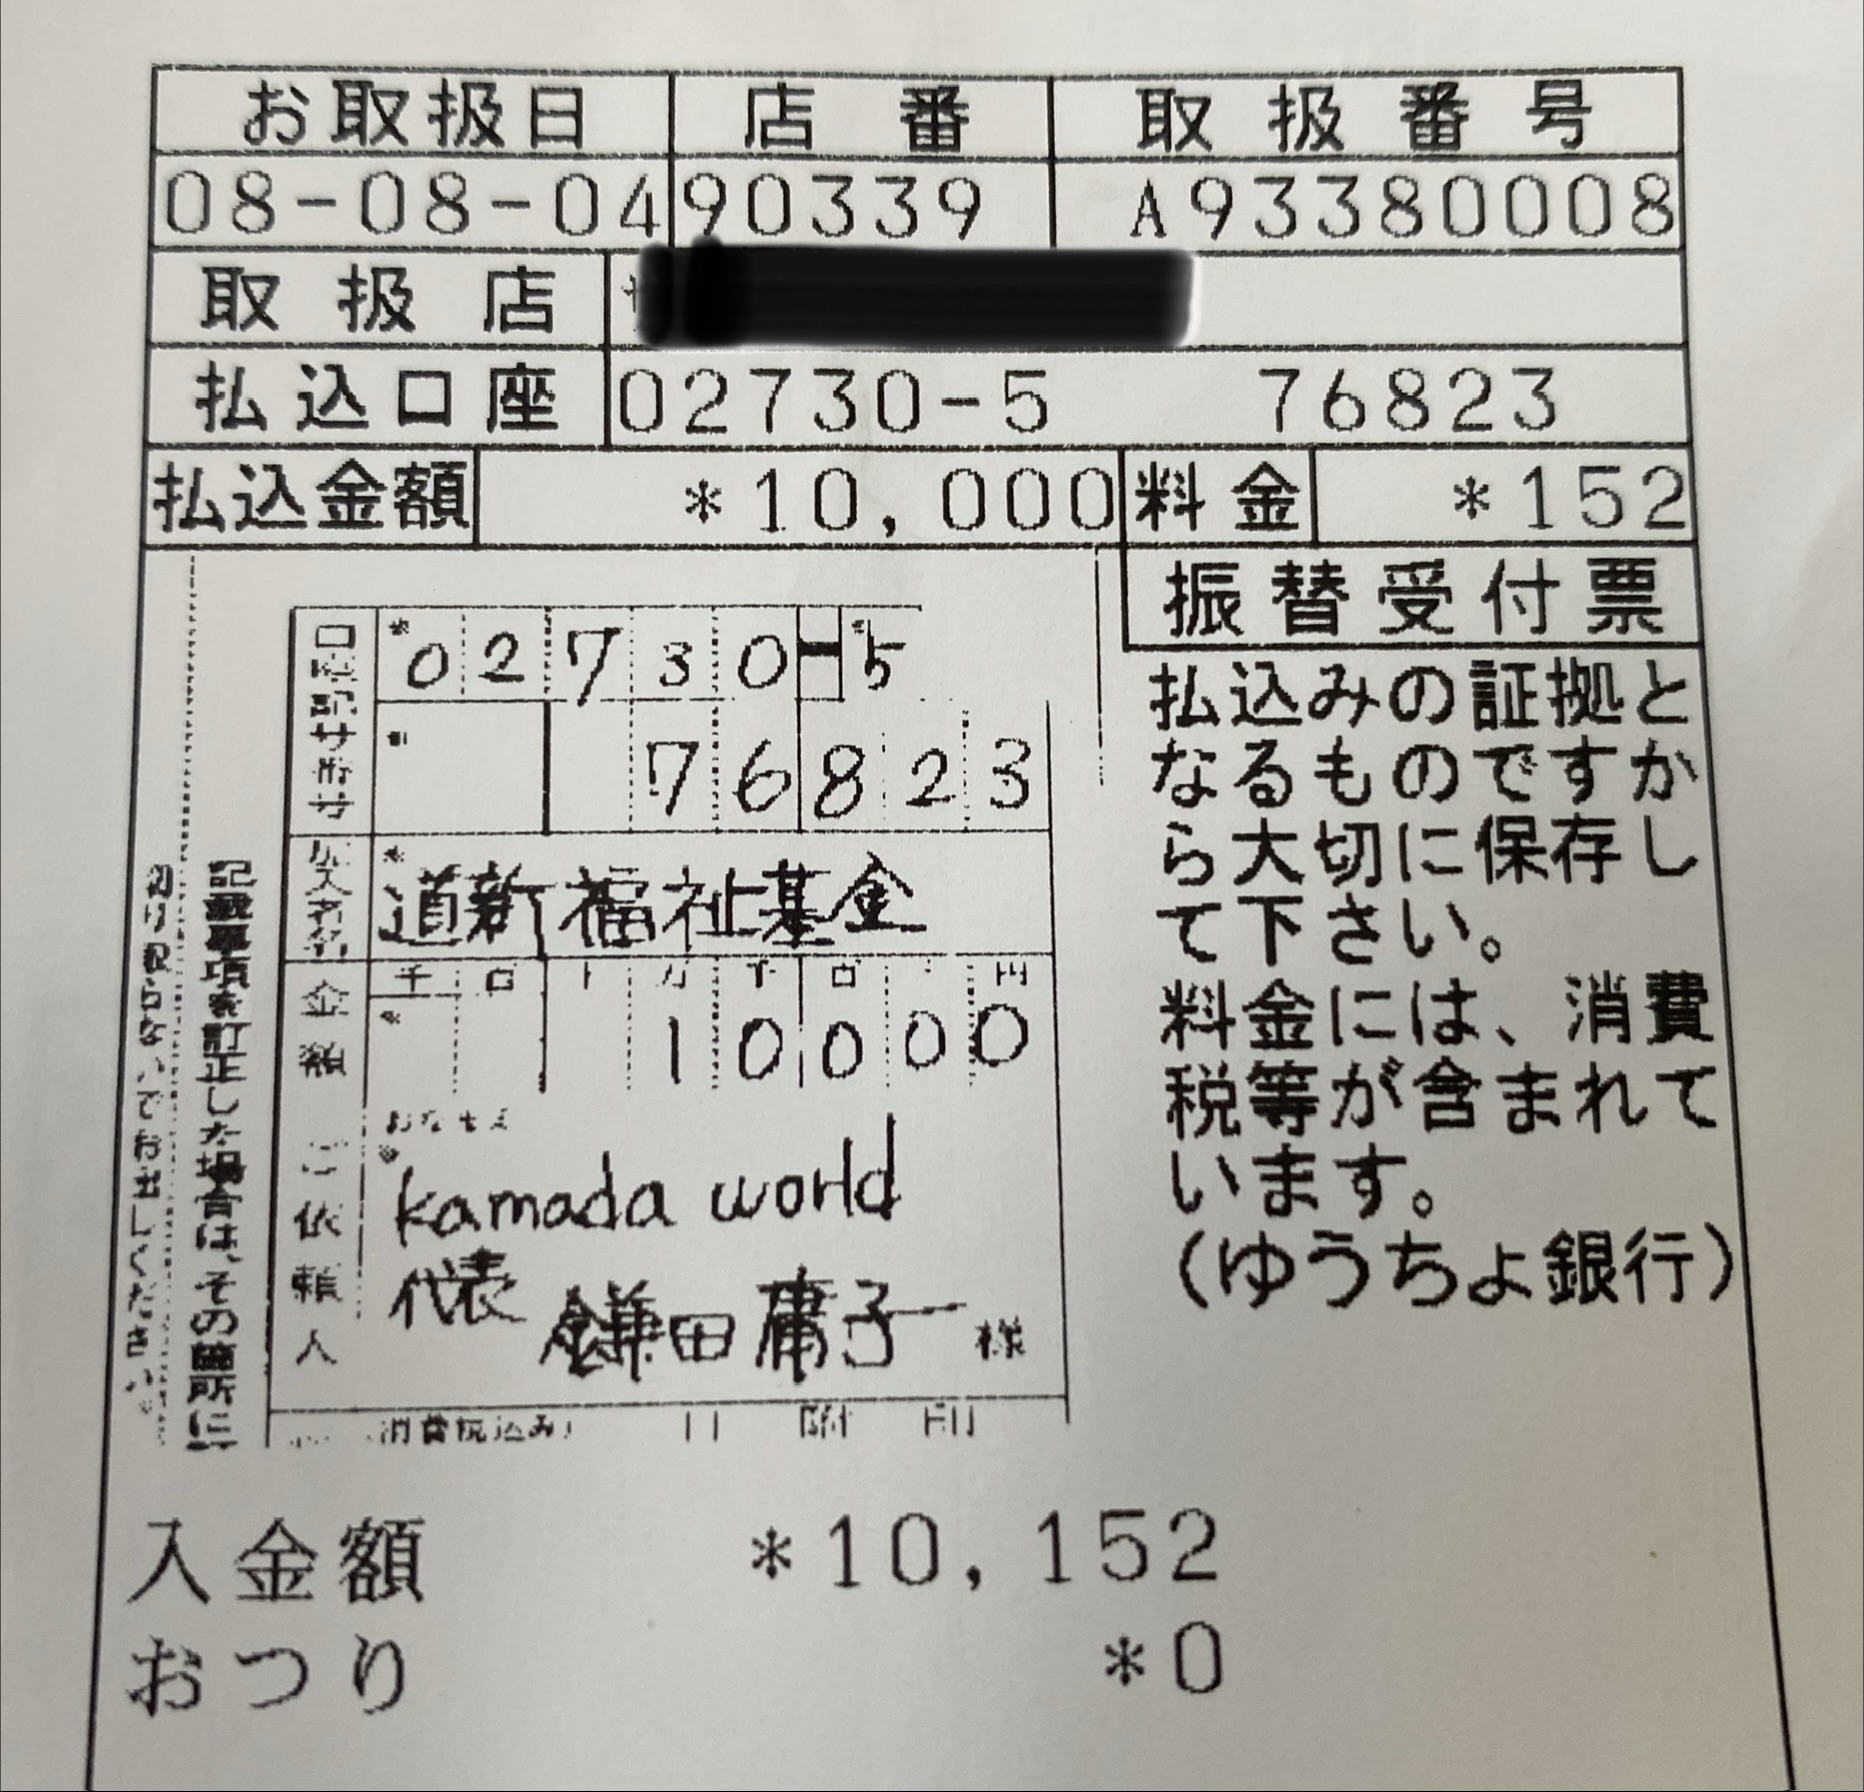 お取扱日 店番 取扱番号
08-08-04 90339 A93380008
取扱店
払込口座 02730-5 76823
払込金額 *10,000 料金 *152
振替受付票
払込みの証拠と
なるものですか
ら大切に保存し
て下さい。
料金には、消費
税等が含まれて
います。
(ゆうちょ銀行)
口座記号番号 02730-5
76823
加入者名 道新福祉基金
金額 千百十万千百十円
10000
おなまえ
ご依頼人 kamada world
代表 鎌田庸子 様
(消費税込み) 日附印
記載事項を訂正した場合は、その箇所に
切り取らないでお出しください。
入金額 *10,152
おつり *0